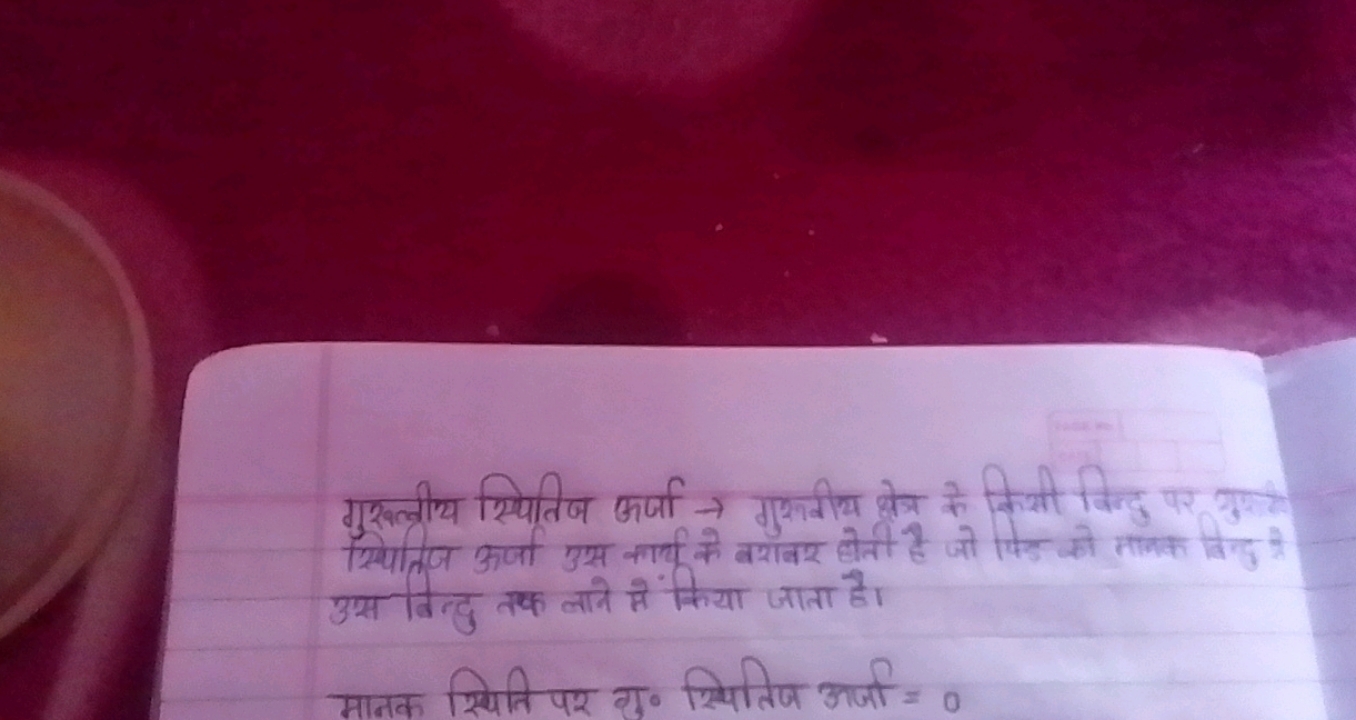 गुरुत्वीय स्थितिज ऊर्जा → गुरुत्वीय क्षेत्र के किसी बिन्दु पर
स्थितिज ऊर्जा उस कार्य के बराबर होती है जो पिंड को मानक बिन्दु से
उस बिन्दु तक लाने में किया जाता है।
मानक स्थिति पर गु० स्थितिज ऊर्जा = 0